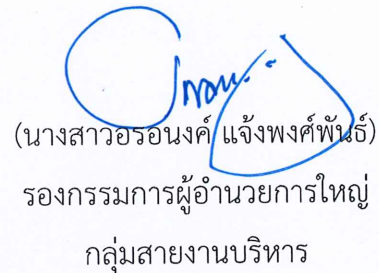 (นางสาวอรอนงค์ แจ้งพงศ์พันธ์)
รองกรรมการผู้อำนวยการใหญ่
กลุ่มสายงานบริหาร